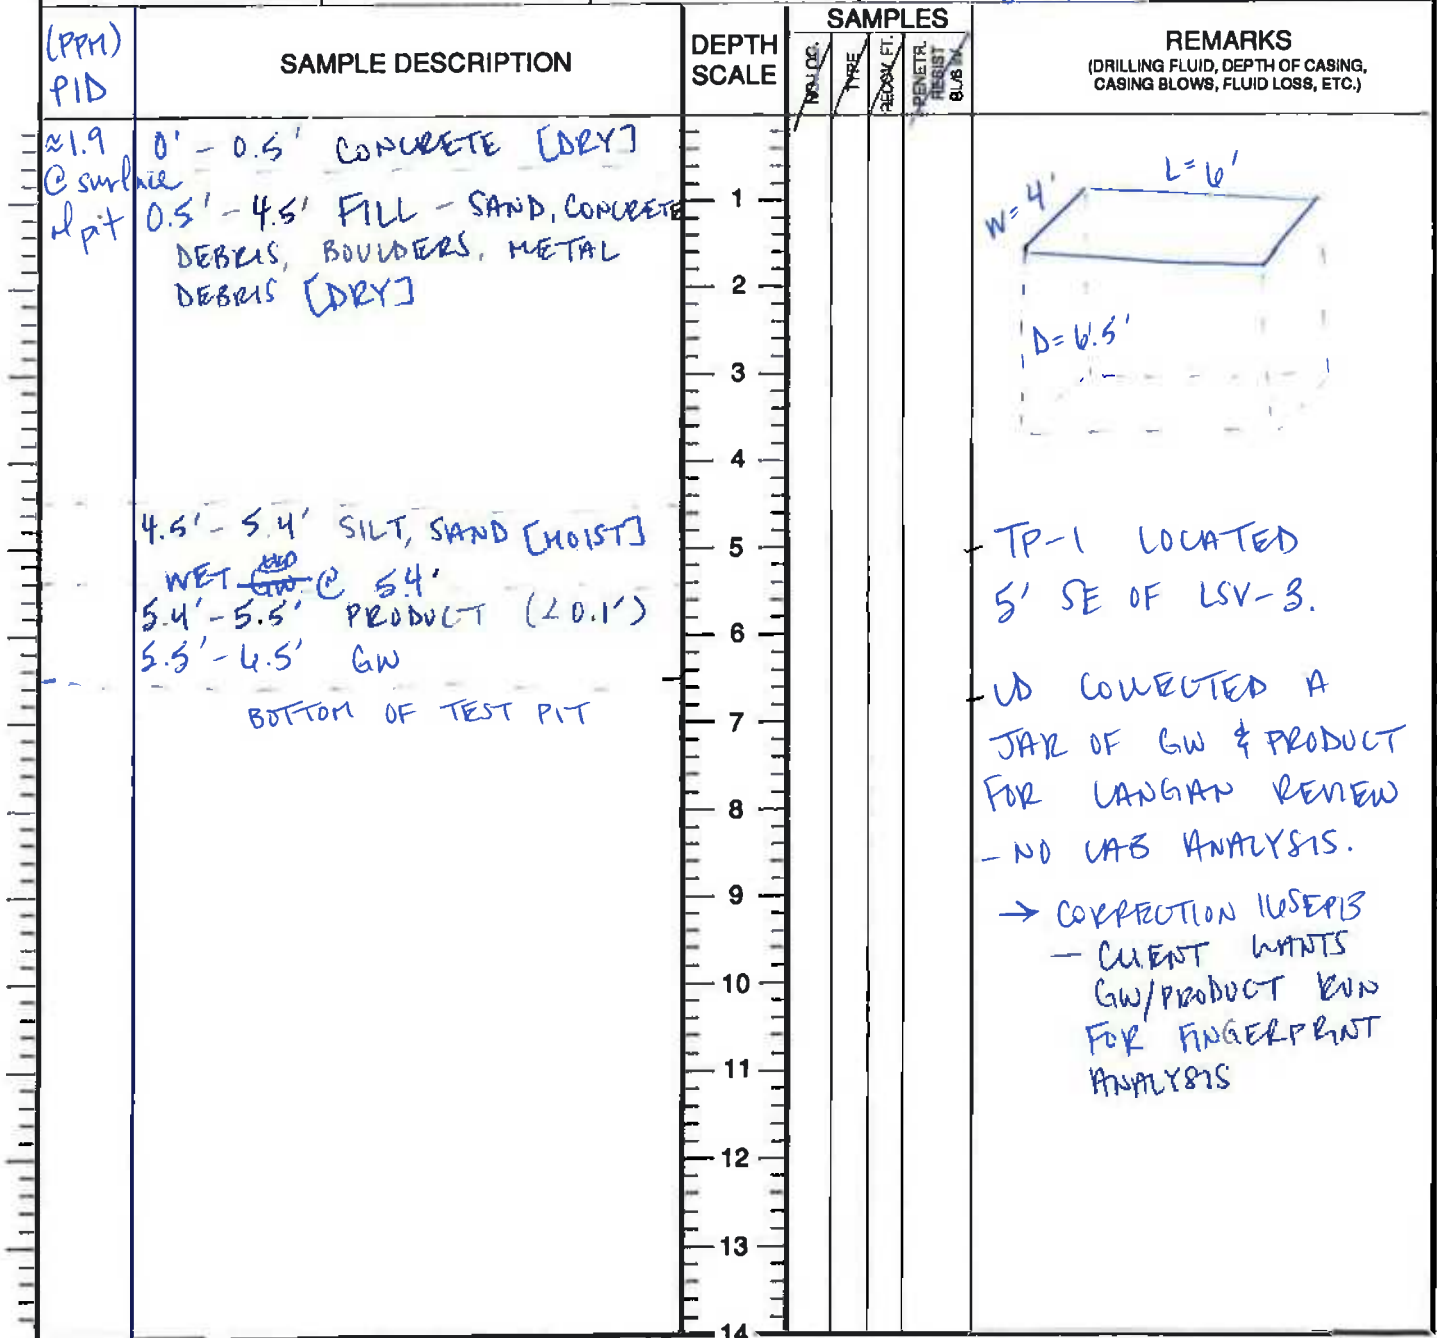 (PPM)
PID
SAMPLE DESCRIPTION
DEPTH
SCALE
SAMPLES
TYPE
RECOV. FT.
PENETR.
RESIST
BL/6 IN.
REMARKS
(DRILLING FLUID, DEPTH OF CASING,
CASING BLOWS, FLUID LOSS, ETC.)
≈1.9
@ surface
of pit
0' - 0.5' CONCRETE [DRY]
0.5' - 4.5' FILL - SAND, CONCRETE
DEBRIS, BOULDERS, METAL
DEBRIS [DRY]
4.5' - 5.4' SILT, SAND [MOIST]
WET GW @ 5.4'
5.4' - 5.5' PRODUCT (<0.1')
5.5' - 6.5' GW
BOTTOM OF TEST PIT
1
2
3
4
5
6
7
8
9
10
11
12
13
14
L=6'
W=4'
D=6.5'
- TP-1 LOCATED
5' SE OF LSV-3.
- LD COLLECTED A
JAR OF GW & PRODUCT
FOR LANGAN REVIEW
- NO LAB ANALYSIS.
→ CORRECTION 16SEP13
- CLIENT WANTS
GW/PRODUCT RUN
FOR FINGERPRINT
ANALYSIS